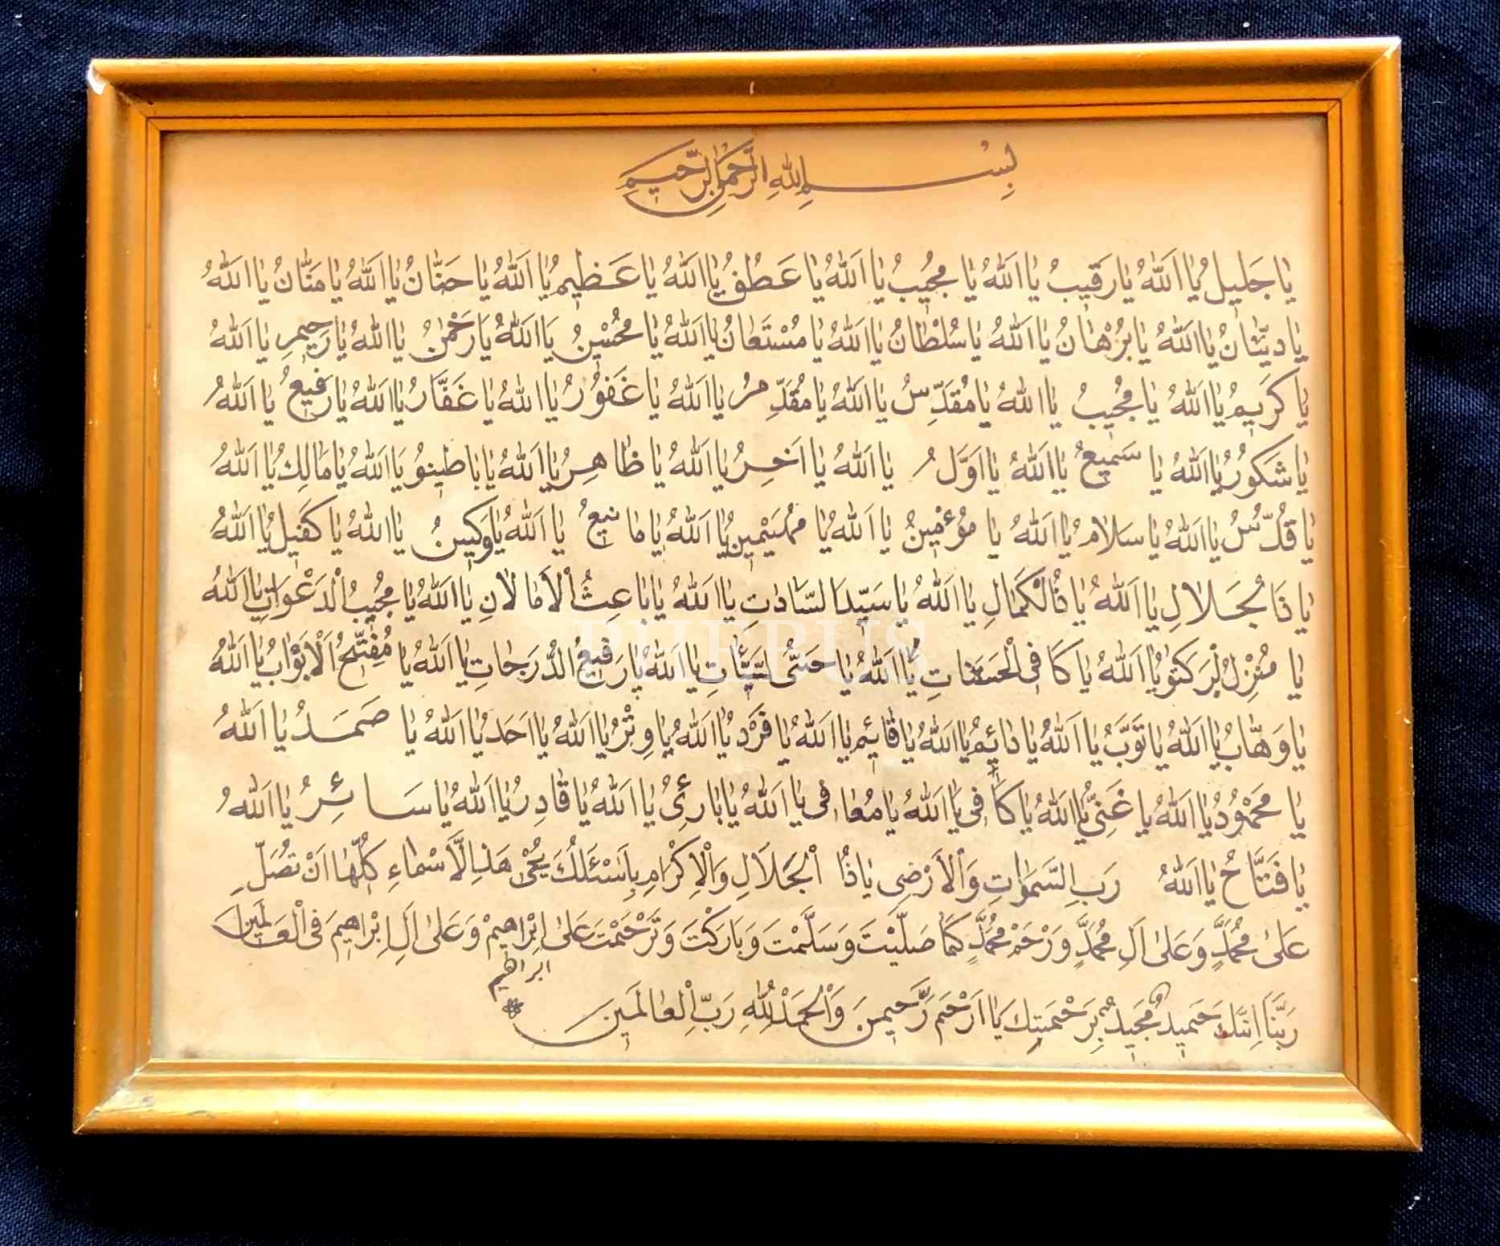 بِسْمِ اللهِ الرَّحْمٰنِ الرَّحِيمِ
يَا جَلِيلُ يَا اَللهُ يَا رَقِيبُ يَا اَللهُ يَا مُجِيبُ يَا اَللهُ يَا عَطُفُ يَا اَللهُ يَا عَظِيمُ يَا اَللهُ يَا حَنَّانُ يَا اَللهُ يَا مَنَّانُ يَا اَللهُ
يَا دَيَّانُ يَا اَللهُ يَا بُرْهَانُ يَا اَللهُ يَا سُلْطَانُ يَا اَللهُ يَا مُسْتَعَانُ يَا اَللهُ يَا مُحْسِنُ يَا اَللهُ يَا رَحْمٰنُ يَا اَللهُ يَا رَحِيمِ يَا اَللهُ
يَا كَرِيمُ يَا اَللهُ يَا مُجِيبُ يَا اَللهُ يَا مُقَدِّسُ يَا اَللهُ يَا مُقَدِّمُ يَا اَللهُ يَا غَفُورُ يَا اَللهُ يَا غَفَّارُ يَا اَللهُ يَا رَفِيعُ يَا اَللهُ
يَا شَكُورُ يَا اَللهُ يَا سَمِيعُ يَا اَللهُ يَا اَوَّلُ يَا اَللهُ يَا اَخِرُ يَا اَللهُ يَا ظَاهِرُ يَا اَللهُ يَا بَاطِينُو يَا اَللهُ يَا مَالِكُ يَا اَللهُ
يَا قُدُّسُ يَا اَللهُ يَا سَلَامُ يَا اَللهُ يَا مُؤْمِنُ يَا اَللهُ يَا مُهَيْمِينُ يَا اَللهُ يَا مَانِيعُ يَا اَللهُ يَا وَكِيسُ يَا اَللهُ يَا كَفِيلُ يَا اَللهُ
يَا ذَا لْجَلَالِ يَا اَللهُ يَا ذَا لْكَمَالِ يَا اَللهُ يَا سَيِّدَ السَّادَتِ يَا اَللهُ يَا بَاعِثُ الْاَمَالَانِ يَا اَللهُ يَا مُجِيبُ الْدَعْوَاتِ يَا اَللهُ
يَا مُنْزِلُ لْبَرَكَتُو يَا اَللهُ يَا كَافِى الْحَسَنَاتِ يَا اَللهُ يَا حَتَّى لسَّيِّئَاتِ يَا اَللهُ يَا رَفِيعُ الْدَرَجَاتِ يَا اَللهُ يَا مُفَتِّحُ اَلْاَبْوَابُ يَا اَللهُ
يَا وَهَّابُ يَا اَللهُ يَا تَوَّبُ يَا اَللهُ يَا دَائِمُ يَا اَللهُ يَا قَائِمِ يَا اَللهُ يَا فَرْدُ يَا اَللهُ يَا وِتْرُ يَا اَللهُ يَا اَحَدُ يَا اَللهُ يَا صَمَدُ يَا اَللهُ
يَا مَحْمُودُ يَا اَللهُ يَا غَنِىُّ يَا اَللهُ يَا كَافِى يَا اَللهُ يَا مُعَافِى يَا اَللهُ يَا بَارِئُ يَا اَللهُ يَا قَادِرُ يَا اَللهُ يَا سَائِرُ يَا اَللهُ
يَا فَتَّاحُ يَا اَللهُ رَبِ السَّمٰوَاتِ وَالْاَرْضِى يَا ذَا اْلجَلَالِ وَالْاِكْرَامِ بِاَسْئَلُكَ بِحَقِّ هَذِا لْاَسْمَاءِ كُلِّهَا اَنْ تُصَلِّ
عَلَى مُحَمَّدٍ وَعَلَى اَلِ مُحَمَّدٍ وَرْحَمْ مُحَمَّدٍ كَمَا صَلَّيْتَ وَسَلَّمْتَ وَبَارَكْتَ وَتَرْحَمْتَ عَلَى اِبْرَاهِيمْ وَعَلَى اَلِ اِبْرَاهِيمَ فِى الْعَالَمِينَ
ابراهيم
رَبَّنَا اِنَّكَ حَمِيدٌ مُجِيدٌ بِرَحْمَتِكَ يَا اَرْحَمَ رَّحِيمِنَ وَاْلحَمْدُ لِلهِ رَبِّ اْلعَالَمِينَ